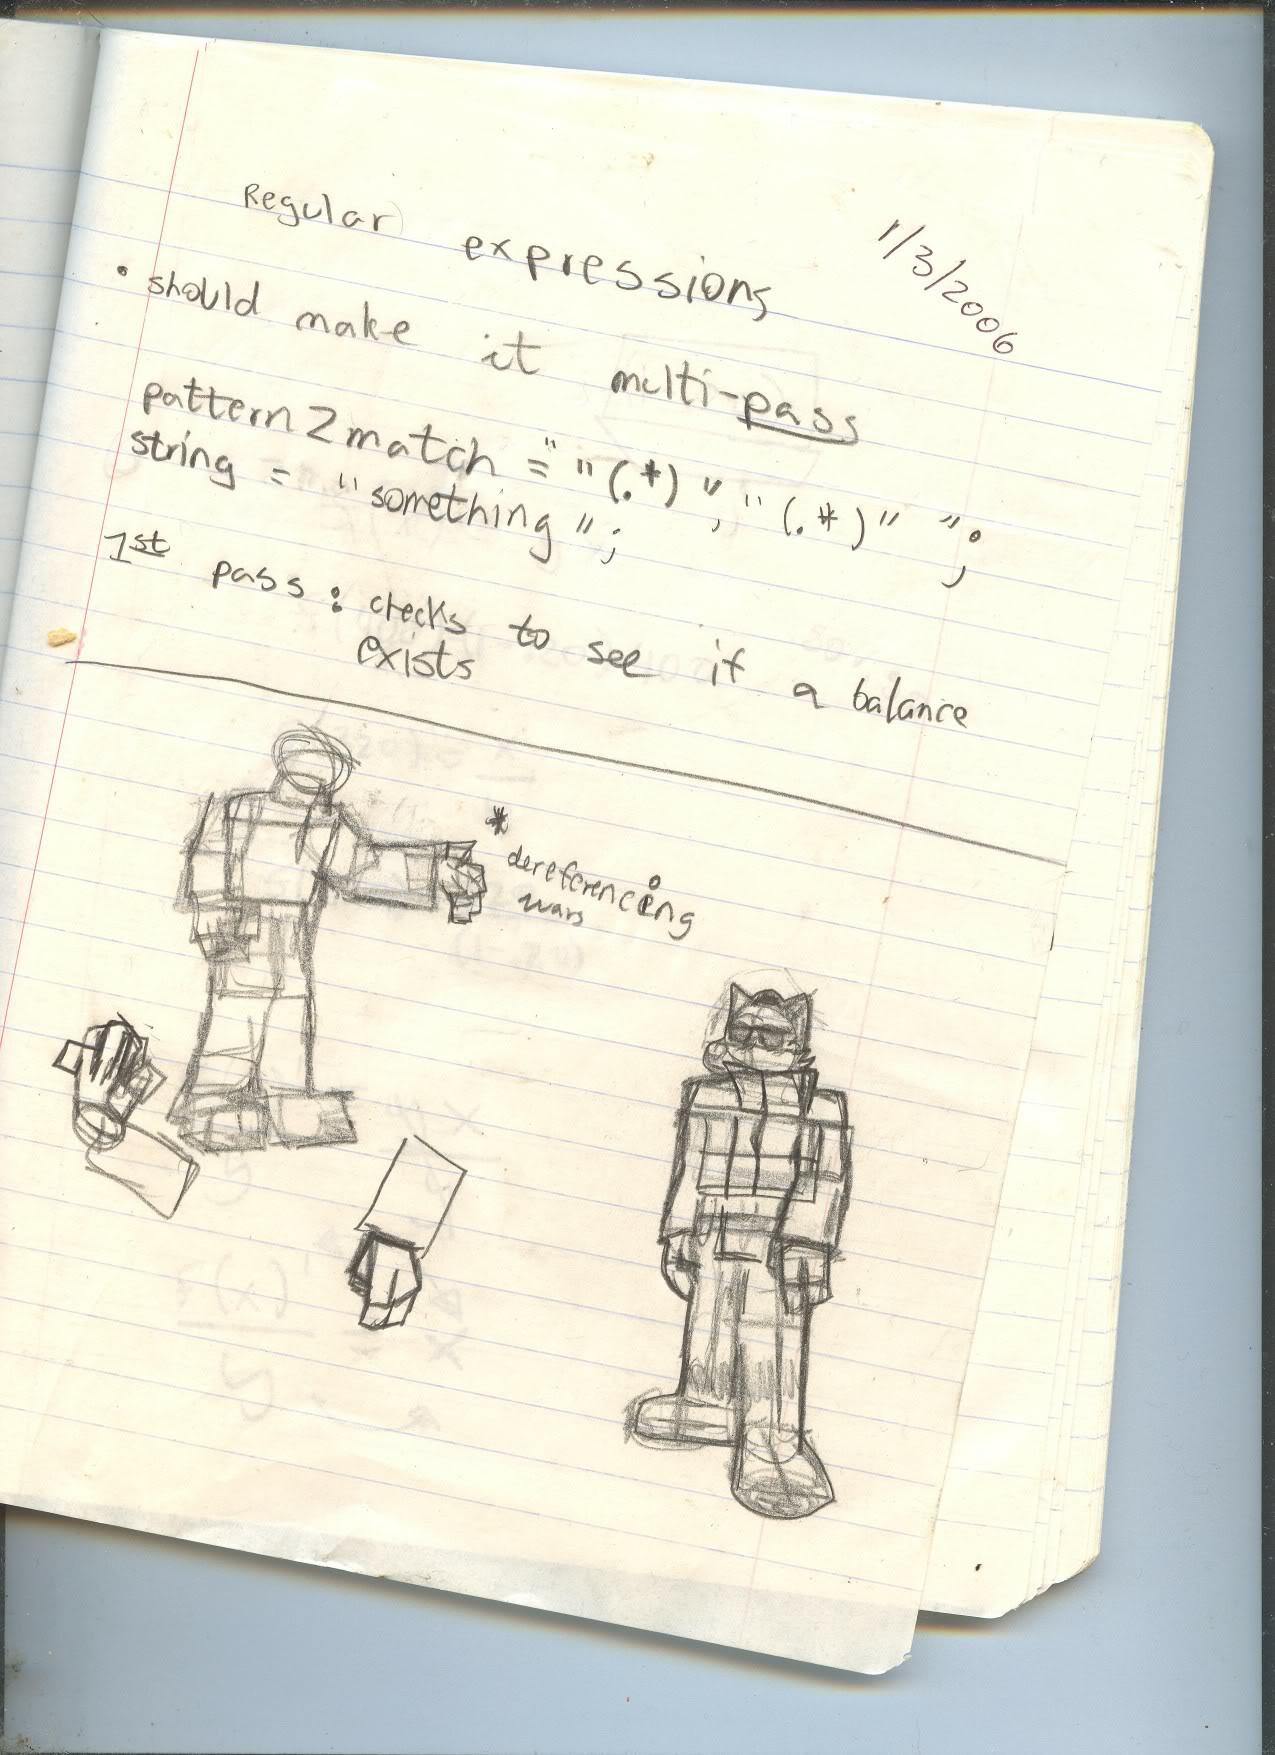 Regular expressions
1/3/2006
• should make it multi-pass
pattern2match = " "(.*)","(.*)" ";
string = "something";
1st pass: checks to see if a balance
exists
*
dereferencing
wars